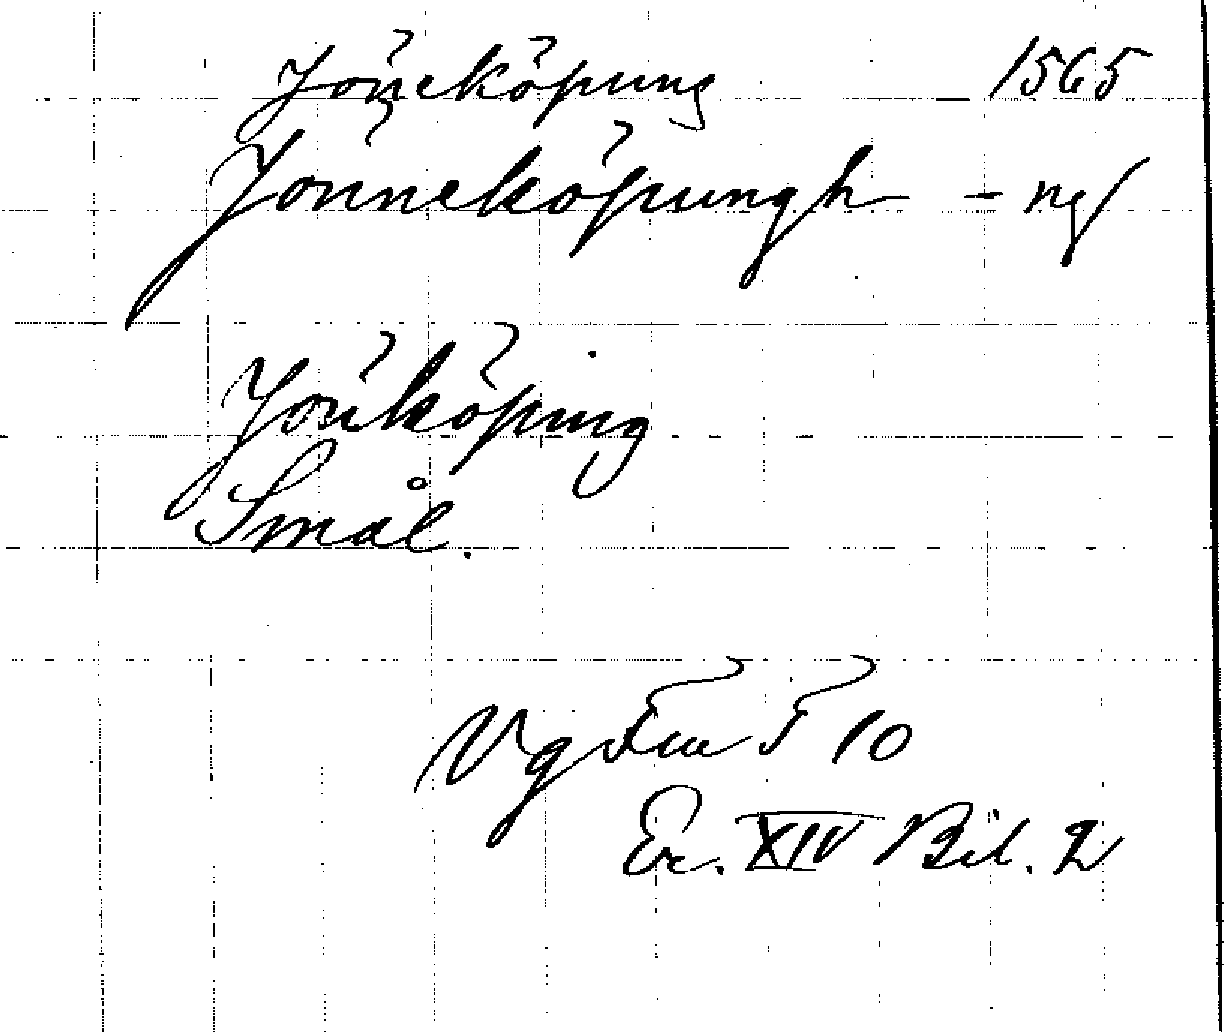 Jöneköpung 1565
Jönneköpungh - ng
Jönköping
Smål.
Vg Fm T 10
Er. XIV Bil. 2